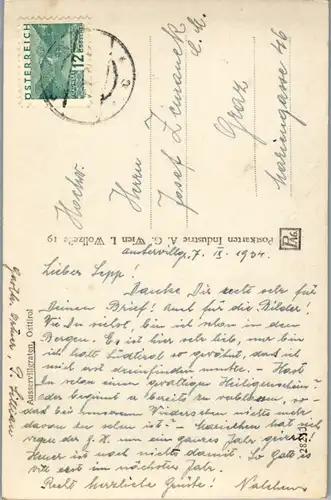 ÖSTERREICH
12
Hochw.
Herrn
Josef Zimanek
Graz
Mariengasse 46
Postkarten Industrie A. G. Wien I. Wollzeile 19
Asstervillgraten, Osttirol
28293z
7. IX. 1934.
Lieber Sepp!
Danke Dir sehr sehr für
Deinen Brief! Auch für die Bilder!
Wie Du siehst, bin ich schon in den
Bergen. Es ist hier sehr lieb, nur bin
ich halt Südtirol so gewöhnt, dass ich
mich erst dreinfinden musste. - Hast
Du schon einen Heiligenschein
oder beginnt er bereits zu verblassen, so-
dass bei unserem Wiedersehen nichts mehr
davon zu sehen ist? -
wegen der um ein ganzes Jahr
Heuer ist noch nichts damit. So Gott es
will erst im nächsten Jahr.
Recht herzliche Grüße!